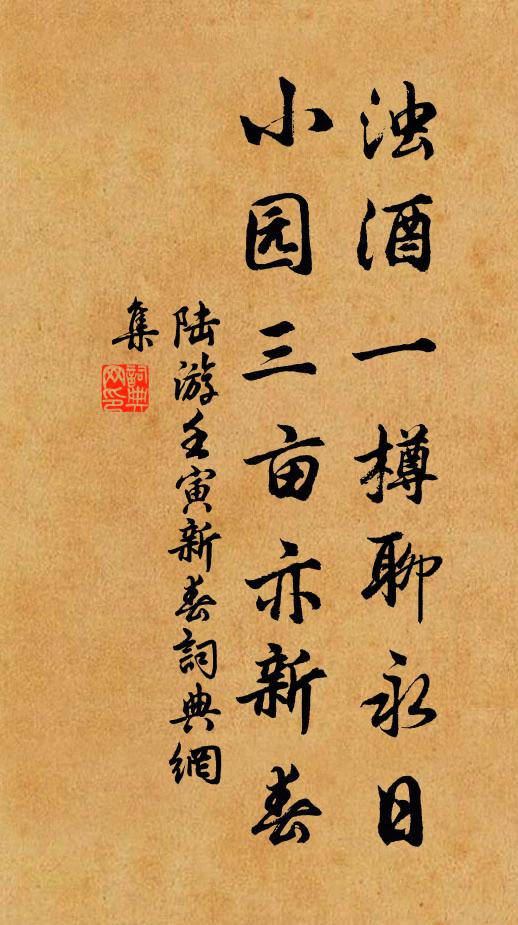 浊酒一樽聊永日
小园三亩亦新春
陆游壬寅新春詞典網
集
詞典网印